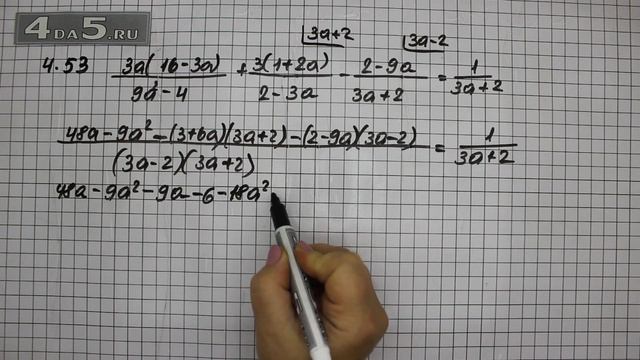 4DA5.RU
3a+2 3a-2
4.53 3a(16-3a)/9a-4 + 3(1+2a)/2-3a - 2-9a/3a+2 = 1/3a+2
48a-9a²-(3+6a)(3a+2)-(2-9a)(3a-2)/(3a-2)(3a+2) = 1/3a+2
48a-9a²-9a-6-18a²